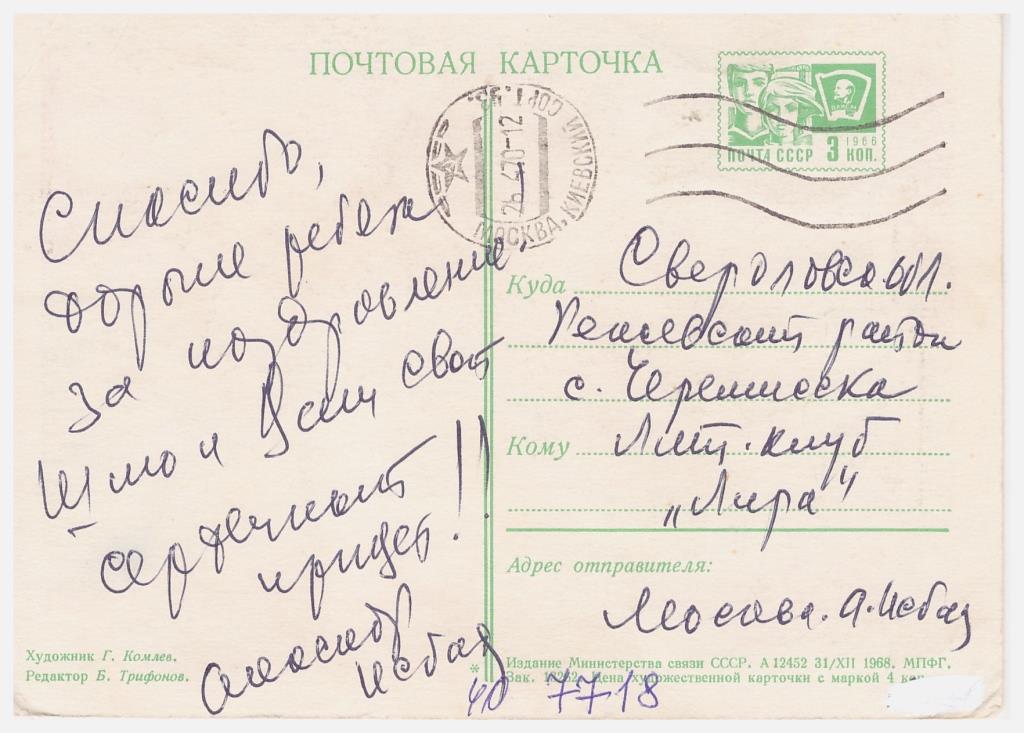 ПОЧТОВАЯ КАРТОЧКА
ВЛКСМ
1966
ПОЧТА СССР 3 КОП.
МОСКВА, КИЕВСКИЙ СОРТ.
-12
Спасибо,
дорогие ребята
за поздравление.
Шлю и Вам свой
сердечный
привет!!
Александр
Исбах
Куда Свердловск обл.
Режевской район
с. Черемисска
Кому Лит. клуб
„Лира"
Адрес отправителя:
Москва. А. Исбах
Художник Г. Комлев.
Редактор Б. Трифонов.
Издание Министерства связи СССР. А 12452 31/XII 1968. МПФГ.
Зак. Цена художественной карточки с маркой 4
7718